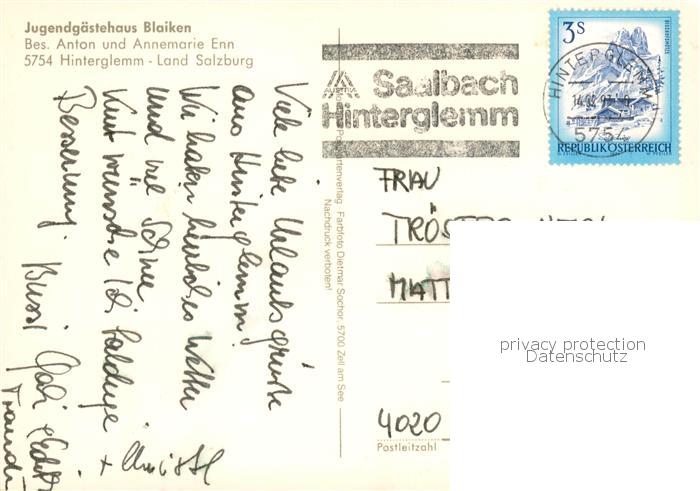 Jugendgästehaus Blaiken
Bes. Anton und Annemarie Enn
5754 Hinterglemm - Land Salzburg
Saalbach
Hinterglemm
3S
HINTERGLEMM
5754
REPUBLIK ÖSTERREICH
Viele liebe Urlaubsgrüße
aus Hinterglemm!
Wir haben herrliches Wetter
und viel Schnee
Kurt wünsche ich baldige
Besserung. Bussi
+ Christl
Farbfoto Dietmar Sochor, 5700 Zell am See
Nachdruck verboten!
FRAU
MATT
4020
Postleitzahl
privacy protection
Datenschutz